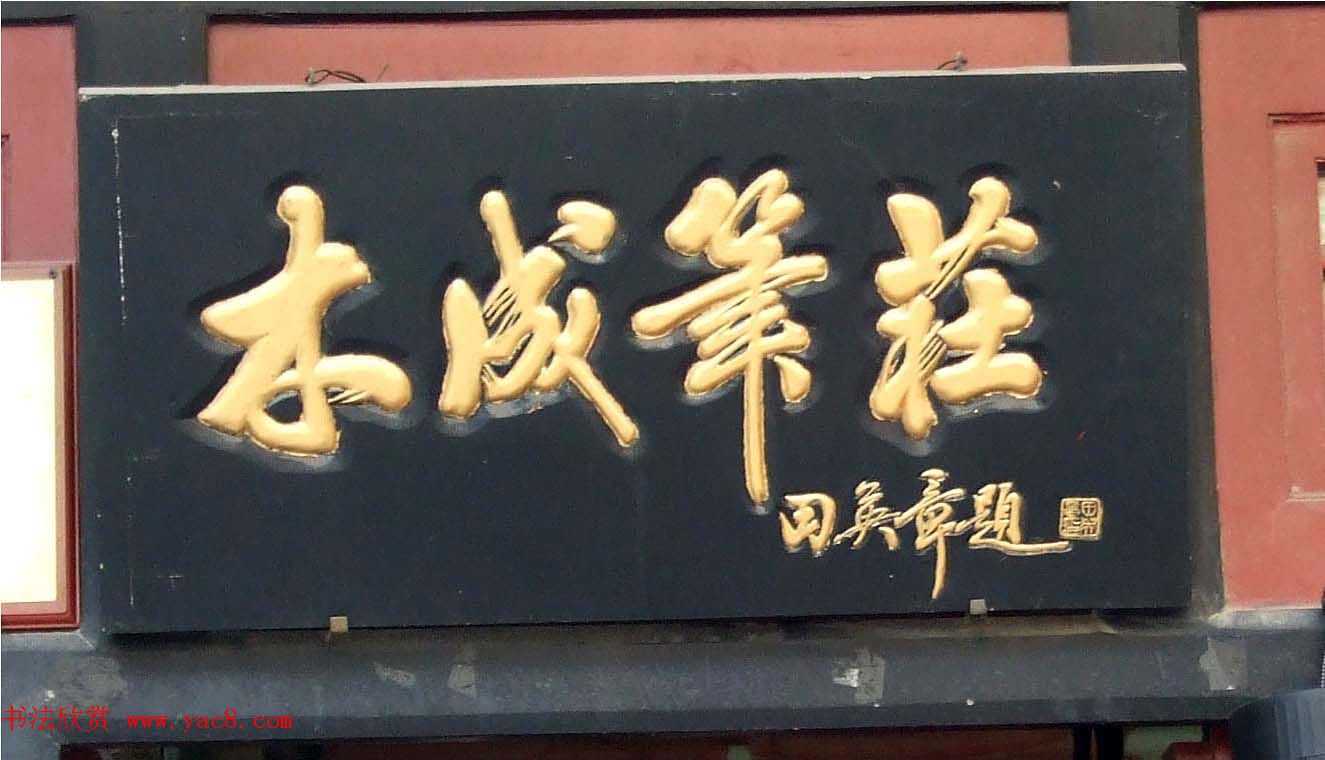 木成筆莊
田英章題
书法欣赏 www.yac8.com